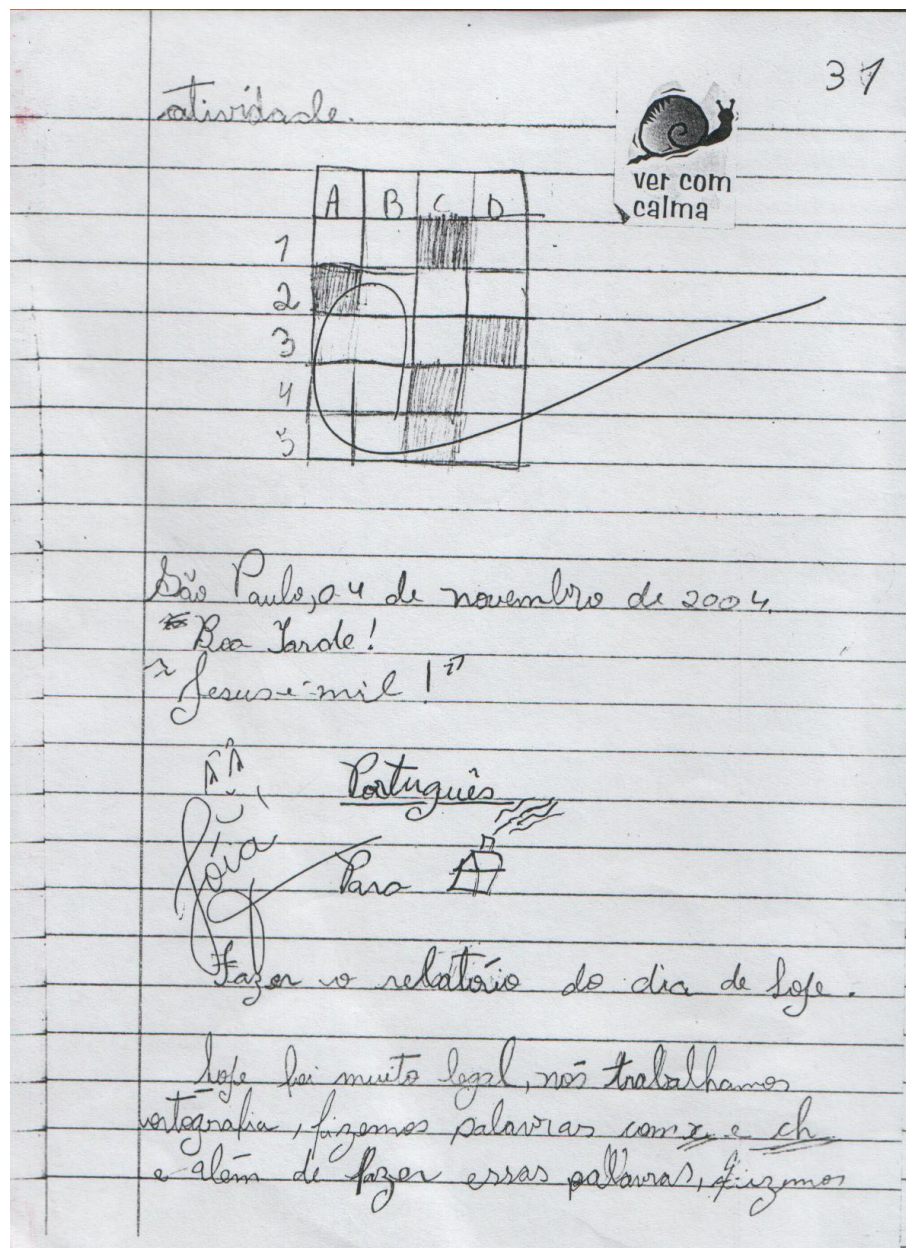 31
atividade.
ver com
calma
A B C D
1
2
3
4
5
São Paulo, 04 de novembro de 2004.
Boa Tarde!
"Jesus é mil!"
Português
Jóia
Para
Fazer o relatório do dia de hoje.
hoje foi muito legal, nós trabalhamos
ortografia, fizemos palavras com x e ch
e além de fazer essas palavras, fizemos